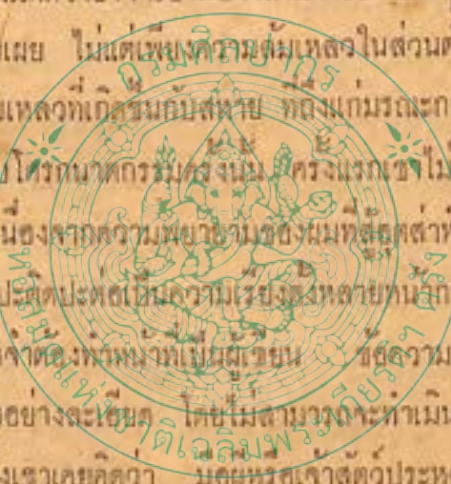 เผย ไม่แต่เพียงความล้มเหลวในส่วนต
เหลวที่เกิดขึ้นกับสหาย ที่ถึงแก่มรณะก
โศกนาฏกรรมครั้งนั้น ครั้งแรกเขาไม่
นื่องจากความพยายามของผมที่
ปะติดปะต่อเป็นความเรียงตั้งหลายหน้าก
จำต้องทำหน้าที่เป็นผู้เขียน ข้อความ
อย่างละเอียด โดยไม่สามารถจะทำเมิน
เขาเคยคิดว่า มีอยู่หรือเจ้าสัตว์ประห
กรมศิลปากร
หอสมุดแห่งชาติเฉลิมพระเกียรติฯ ตรัง